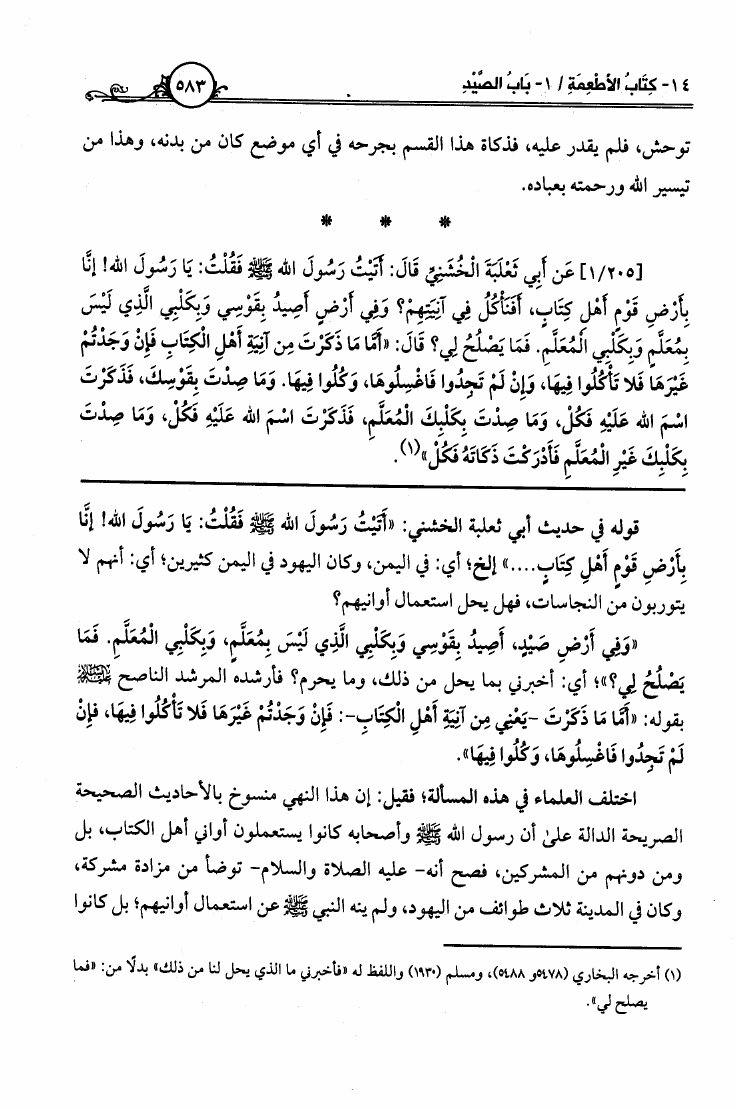 ١٤- كِتَابُ الأَطْعِمَةِ / ١- بَابُ الصَّيْدِ
٥٨٣
توحش، فلم يقدر عليه، فذكاة هذا القسم بجرحه في أي موضع كان من بدنه، وهذا من
تيسير الله ورحمته بعباده.
* * *
[١/٢٠٥] عَن أَبِي ثَعْلَبَةَ الْخُشَنِيِّ قَالَ: أَتَيْتُ رَسُولَ الله ﷺ فَقُلْتُ: يَا رَسُولَ الله! إنَّا
بِأَرْضِ قَوْمٍ أَهْلِ كِتَابٍ، أَفَنَأْكُلُ فِي آنِيَتِهِمْ؟ وَفِي أَرْضٍ أَصِيدُ بِقَوْسِي وَبِكَلْبِي الَّذِي لَيْسَ
بِمُعَلَّمٍ وَبِكَلْبِي الْمُعَلَّمِ. فَمَا يَصْلُحُ لِي؟ قَالَ: «أَمَّا مَا ذَكَرْتَ مِن آنِيَةِ أَهْلِ الْكِتَابِ فَإِنْ وَجَدْتُمْ
غَيْرَهَا فَلا تَأْكُلُوا فِيهَا، وَإِنْ لَمْ تَجِدُوا فَاغْسِلُوهَا، وَكُلُوا فِيهَا. وَمَا صِدْتَ بِقَوْسِكَ، فَذَكَرْتَ
اسْمَ الله عَلَيْهِ فَكُلْ، وَمَا صِدْتَ بِكَلْبِكَ الْمُعَلَّمِ، فَذَكَرْتَ اسْمَ الله عَلَيْهِ فَكُلْ، وَمَا صِدْتَ
بِكَلْبِكَ غَيْرِ الْمُعَلَّمِ فَأَدْرَكْتَ ذَكَاتَهُ فَكُلْ»(١).
قوله في حديث أبي ثعلبة الخشني: «أَتَيْتُ رَسُولَ الله ﷺ فَقُلْتُ: يَا رَسُولَ الله! إنَّا
بِأَرْضِ قَوْمٍ أَهْلِ كِتَابٍ....» إلخ؛ أي: في اليمن، وكان اليهود في اليمن كثيرين؛ أي: أنهم لا
يتوربون من النجاسات، فهل يحل استعمال أوانيهم؟
«وَفِي أَرْضِ صَيْدٍ، أَصِيدُ بِقَوْسِي وَبِكَلْبِي الَّذِي لَيْسَ بِمُعَلَّمٍ، وَبِكَلْبِي الْمُعَلَّمِ. فَمَا
يَصْلُحُ لِي؟»؛ أي: أخبرني بما يحل من ذلك، وما يحرم؟ فأرشده المرشد الناصح ﷺ
بقوله: «أَمَّا مَا ذَكَرْتَ -يَعْنِي مِن آنِيَةِ أَهْلِ الْكِتَابِ-: فَإِنْ وَجَدْتُمْ غَيْرَهَا فَلا تَأْكُلُوا فِيهَا، فَإِنْ
لَمْ تَجِدُوا فَاغْسِلُوهَا، وَكُلُوا فِيهَا».
اختلف العلماء في هذه المسألة؛ فقيل: إن هذا النهي منسوخ بالأحاديث الصحيحة
الصريحة الدالة علىٰ أن رسول الله ﷺ وأصحابه كانوا يستعملون أواني أهل الكتاب، بل
ومن دونهم من المشركين، فصح أنه- عليه الصلاة والسلام- توضأ من مزادة مشركة،
وكان في المدينة ثلاث طوائف من اليهود، ولم ينه النبي ﷺ عن استعمال أوانيهم؛ بل كانوا
(١) أخرجه البخاري (٥٤٧٨و ٥٤٨٨)، ومسلم (١٩٣٠) واللفظ له «فأخبرني ما الذي يحل لنا من ذلك» بدلًا من: «فما
يصلح لي».